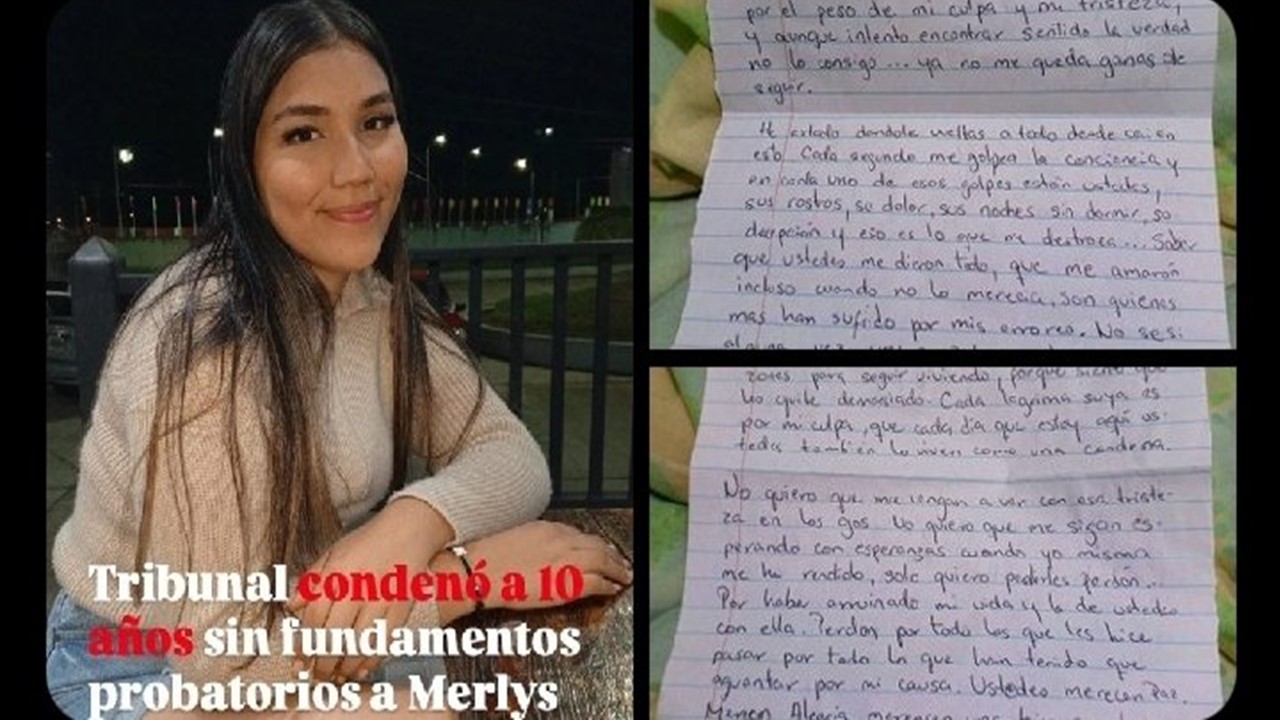 Tribunal condenó a 10
años sin fundamentos
probatorios a Merlys
por el peso de mi culpa y mi tristeza,
y aunque intento encontrar sentido la verdad
no lo consigo... ya no me queda ganas de
seguir.
H estado dandole vueltas a todo desde cai en
esto. Cada segundo me golpea la conciencia y
en cada uno de esos golpes están ustedes,
sus rostros, su dolor, sus noches sin dormir, su
decepción y eso es lo que me destroza... Saber
que ustedes me dieron todo, que me amarón
incluso cuando no lo merecia, son quienes
mas han sufrido por mis errores. No se si
zones para seguir viviendo, porque siento que
les quite demasiado. Cada lagrima suya es
por mi culpa, que cada dia que estoy aquí us-
tedes también lo viven como una condena.
No quiero que me vengan a ver con esa triste-
za en los ojos. No quiero que me sigan es-
perando con esperanzas cuando yo misma
me he rendido, solo quiero pedirles perdón...
Por haber arruinado mi vida y la de ustedes
con ella. Perdon por todo los que les hice
pasar por todo lo que han tenido que
aguantar por mi causa. Ustedes merecen Paz.
Merecen Alegria merecen